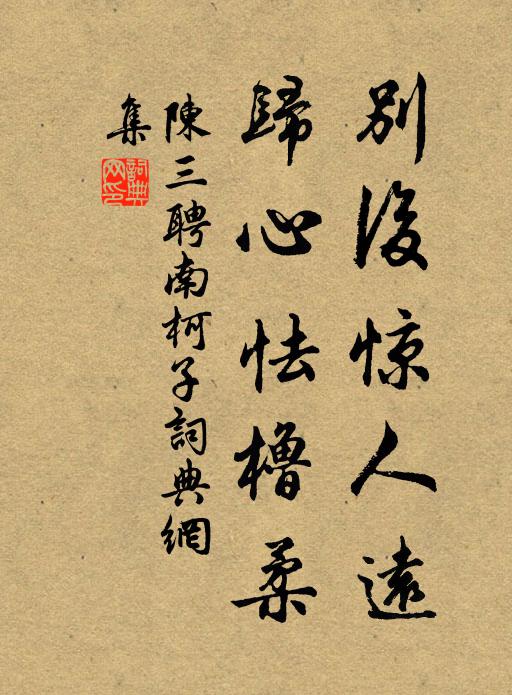 別後惊人遠
歸心怯櫓柔
陳三聘南柯子詞典網
集
詞典
网印